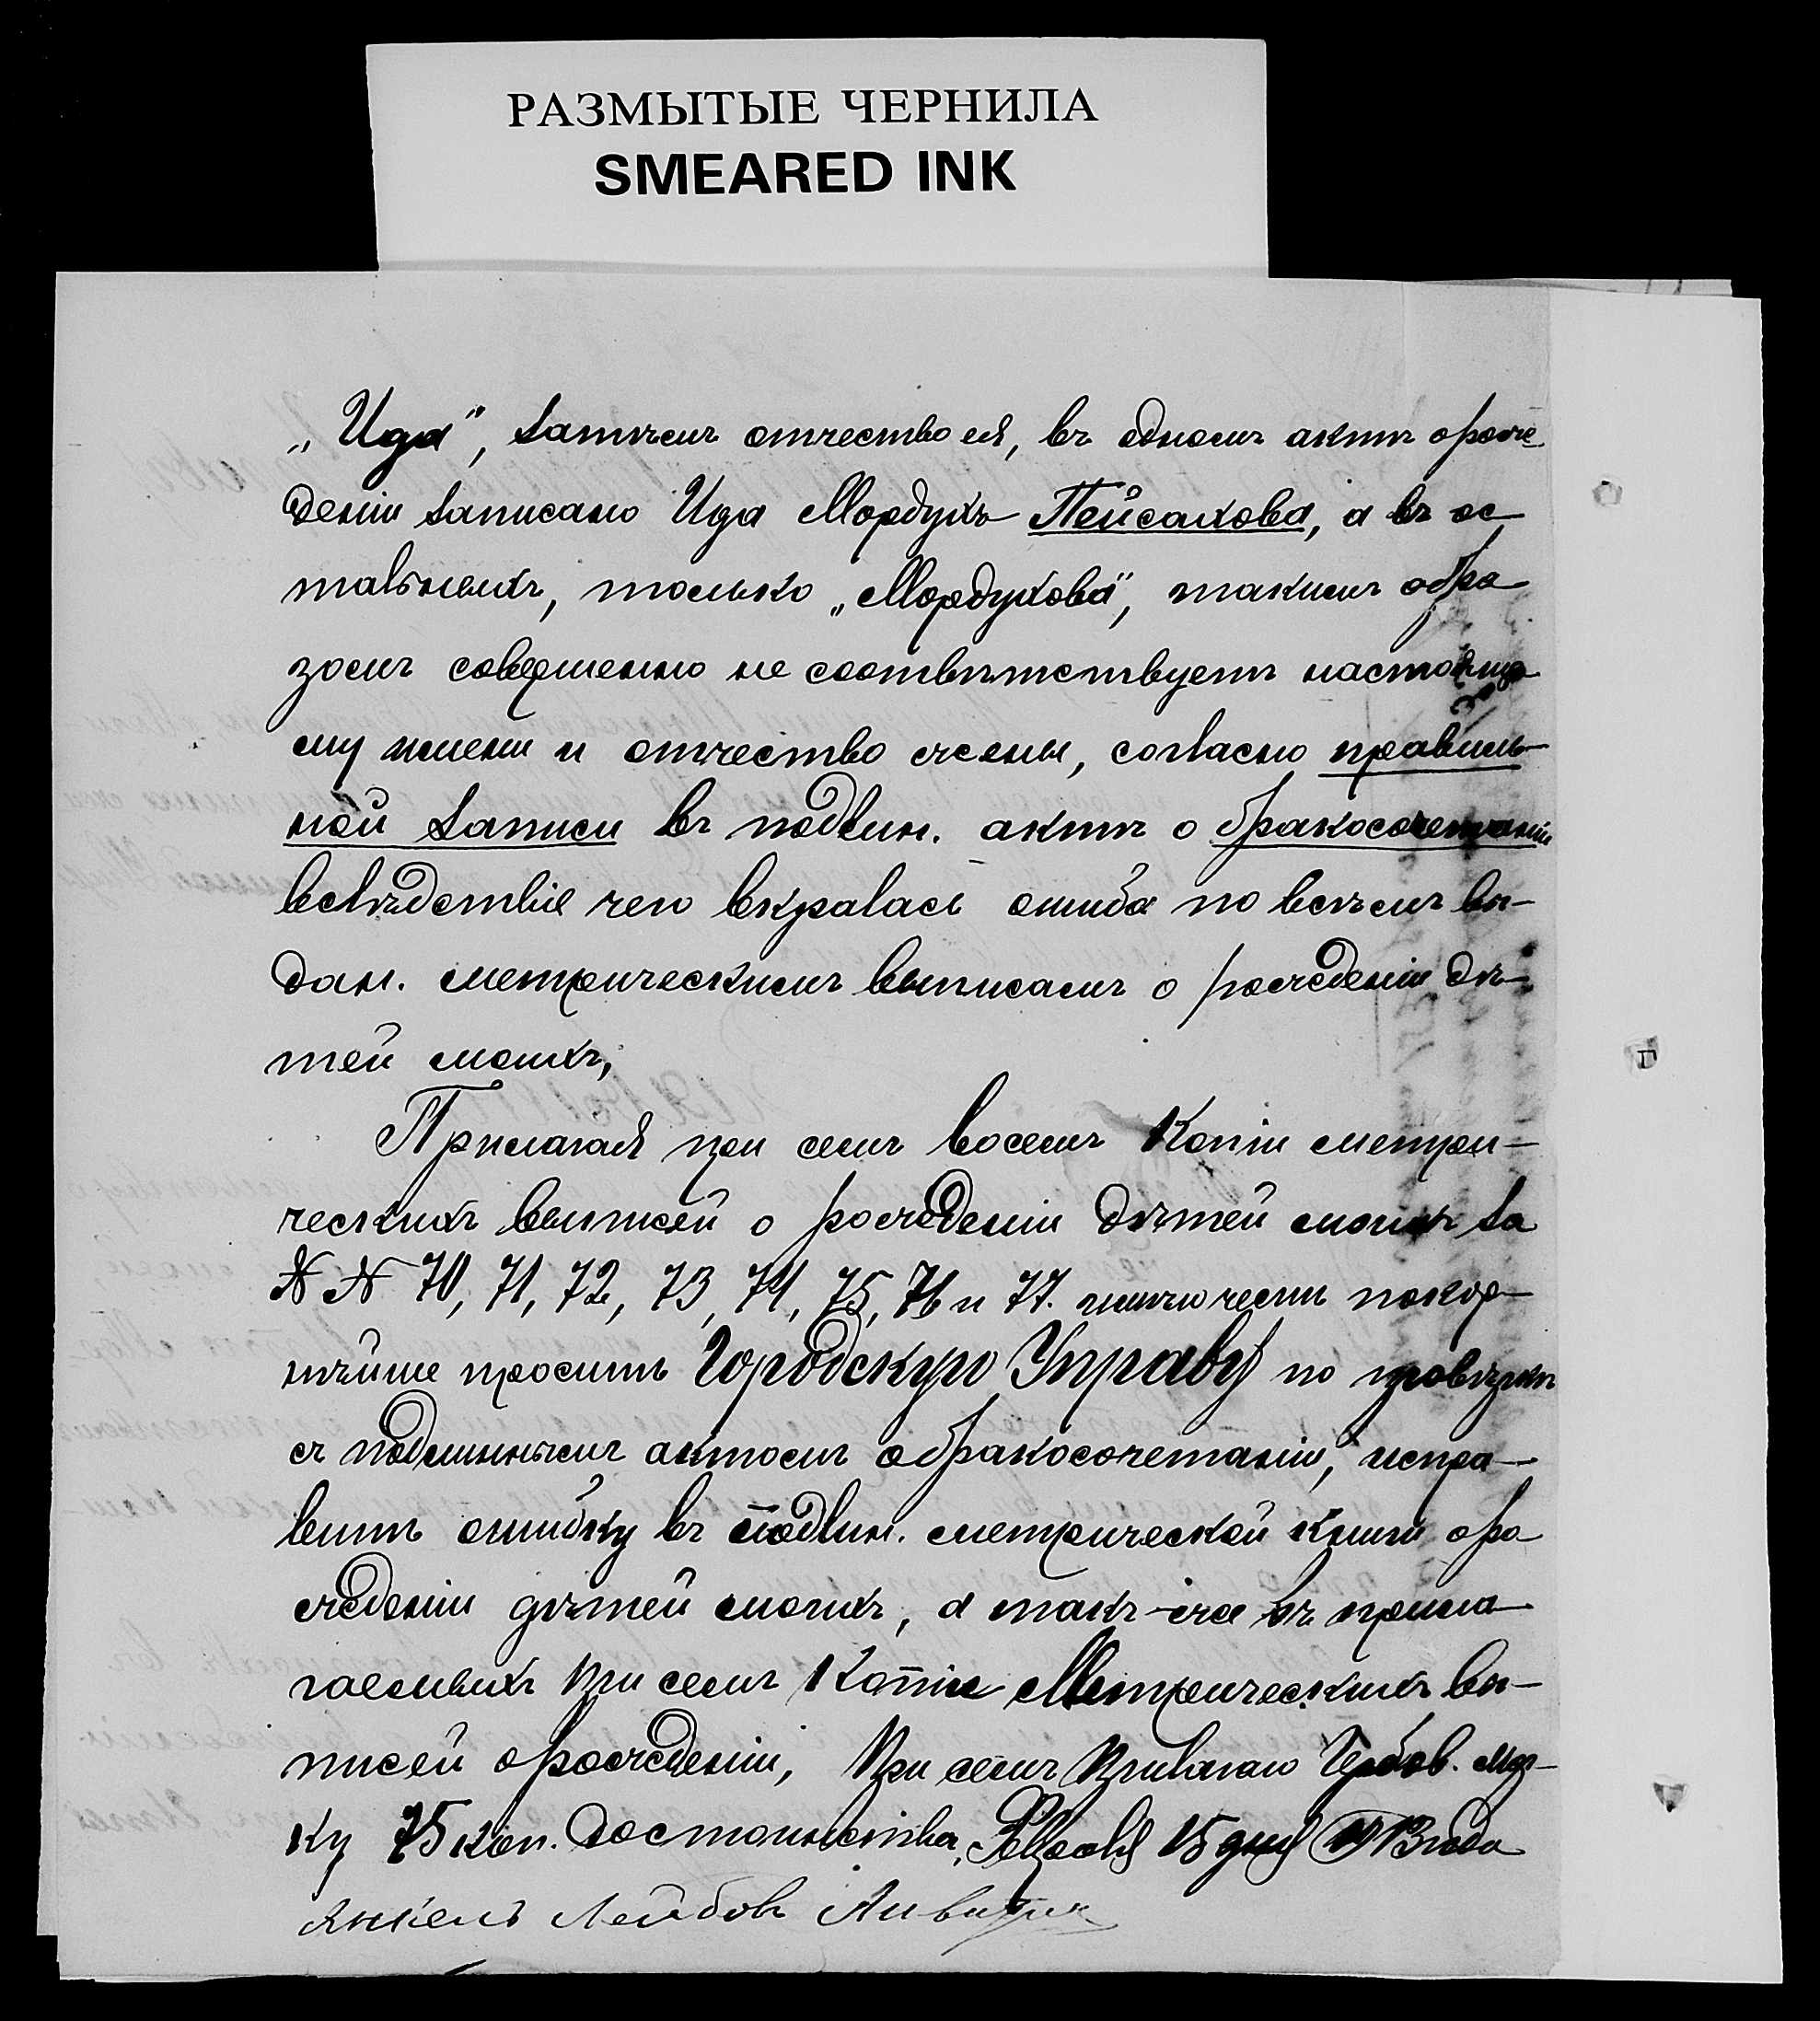 РАЗМЫТЫЕ ЧЕРНИЛА
SMEARED INK
„Ида", Затѣмъ отчество ея, въ одномъ актѣ о рож-
деніи записано Ида Мордухъ Пейсахова, а въ ос-
тальныхъ, только „Мордухова", такимъ обра-
зомъ совершенно не соотвѣтствуетъ настояще-
му имени и отчество жены, согласно правиль-
ной записи въ подлин. актѣ о бракосочетаніи
вслѣдствіе чего вкралась ошиба по всѣмъ вы-
дан. метрическимъ выписамъ о рожденіи дѣ-
тей моихъ,
Прилагая при семъ восемь Копіи метри-
ческихъ выписей о рожденіи дѣтей моихъ за
№ № 70, 71, 72, 73, 74, 75, 76 и 77. имѣю честь покор-
нѣйше просить Городскую Управу по провѣрки
съ подлиннымъ актомъ о бракосочетаніи, испра-
вить ошибку въ подлин. метрической книги о ро
жденіи дѣтей моихъ, а такъ-же въ прила-
гаемыхъ при семъ Копіи Метрическихъ вы-
писей о рожденіи, При семъ прилагаю Гербов. Мар-
ку 75 коп. достоинства, Февраля 15 дня 1913 года
Янкель Лейбовъ